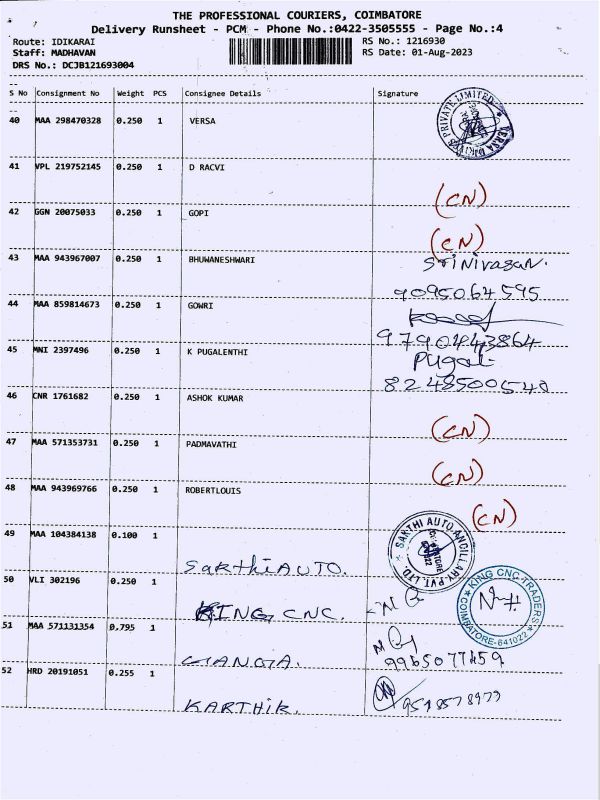 THE PROFESSIONAL COURIERS, COIMBATORE
Delivery Runsheet - PCM - Phone No.:0422-3505555 - Page No.:4
Route: IDIKARAI RS No.: 1216930
Staff: MADHAVAN RS Date: 01-Aug-2023
DRS No.: DCJB121693004
S No Consignment No Weight PCS Consignee Details Signature
40 MAA 298470328 0.250 1 VERSA
PRIVATE LIMITED
41 VPL 219752145 0.250 1 D RACVI
(CN)
42 GGN 20075033 0.250 1 GOPI
(CN)
43 MAA 943967007 0.250 1 BHUWANESHWARI
Srinivasan.
9095064595
44 MAA 859814673 0.250 1 GOWRI
9790443864
45 MNI 2397496 0.250 1 K PUGALENTHI
Pugal
8248500540
46 CNR 1761682 0.250 1 ASHOK KUMAR
(CN)
47 MAA 571353731 0.250 1 PADMAVATHI
(CN)
48 MAA 943969766 0.250 1 ROBERTLOUIS
(CN)
49 MAA 104384138 0.100 1
SakthiAUTO.
SAKTHI AUTO ANCILLARY PVT. LTD.
50 VLI 302196 0.250 1
KING CNC.
KING CNC TRADERS
COIMBATORE-641022
51 MAA 571131354 0.795 1
GANGA.
9965077459
52 HRD 20191051 0.255 1
KARTHIK.
9518578977